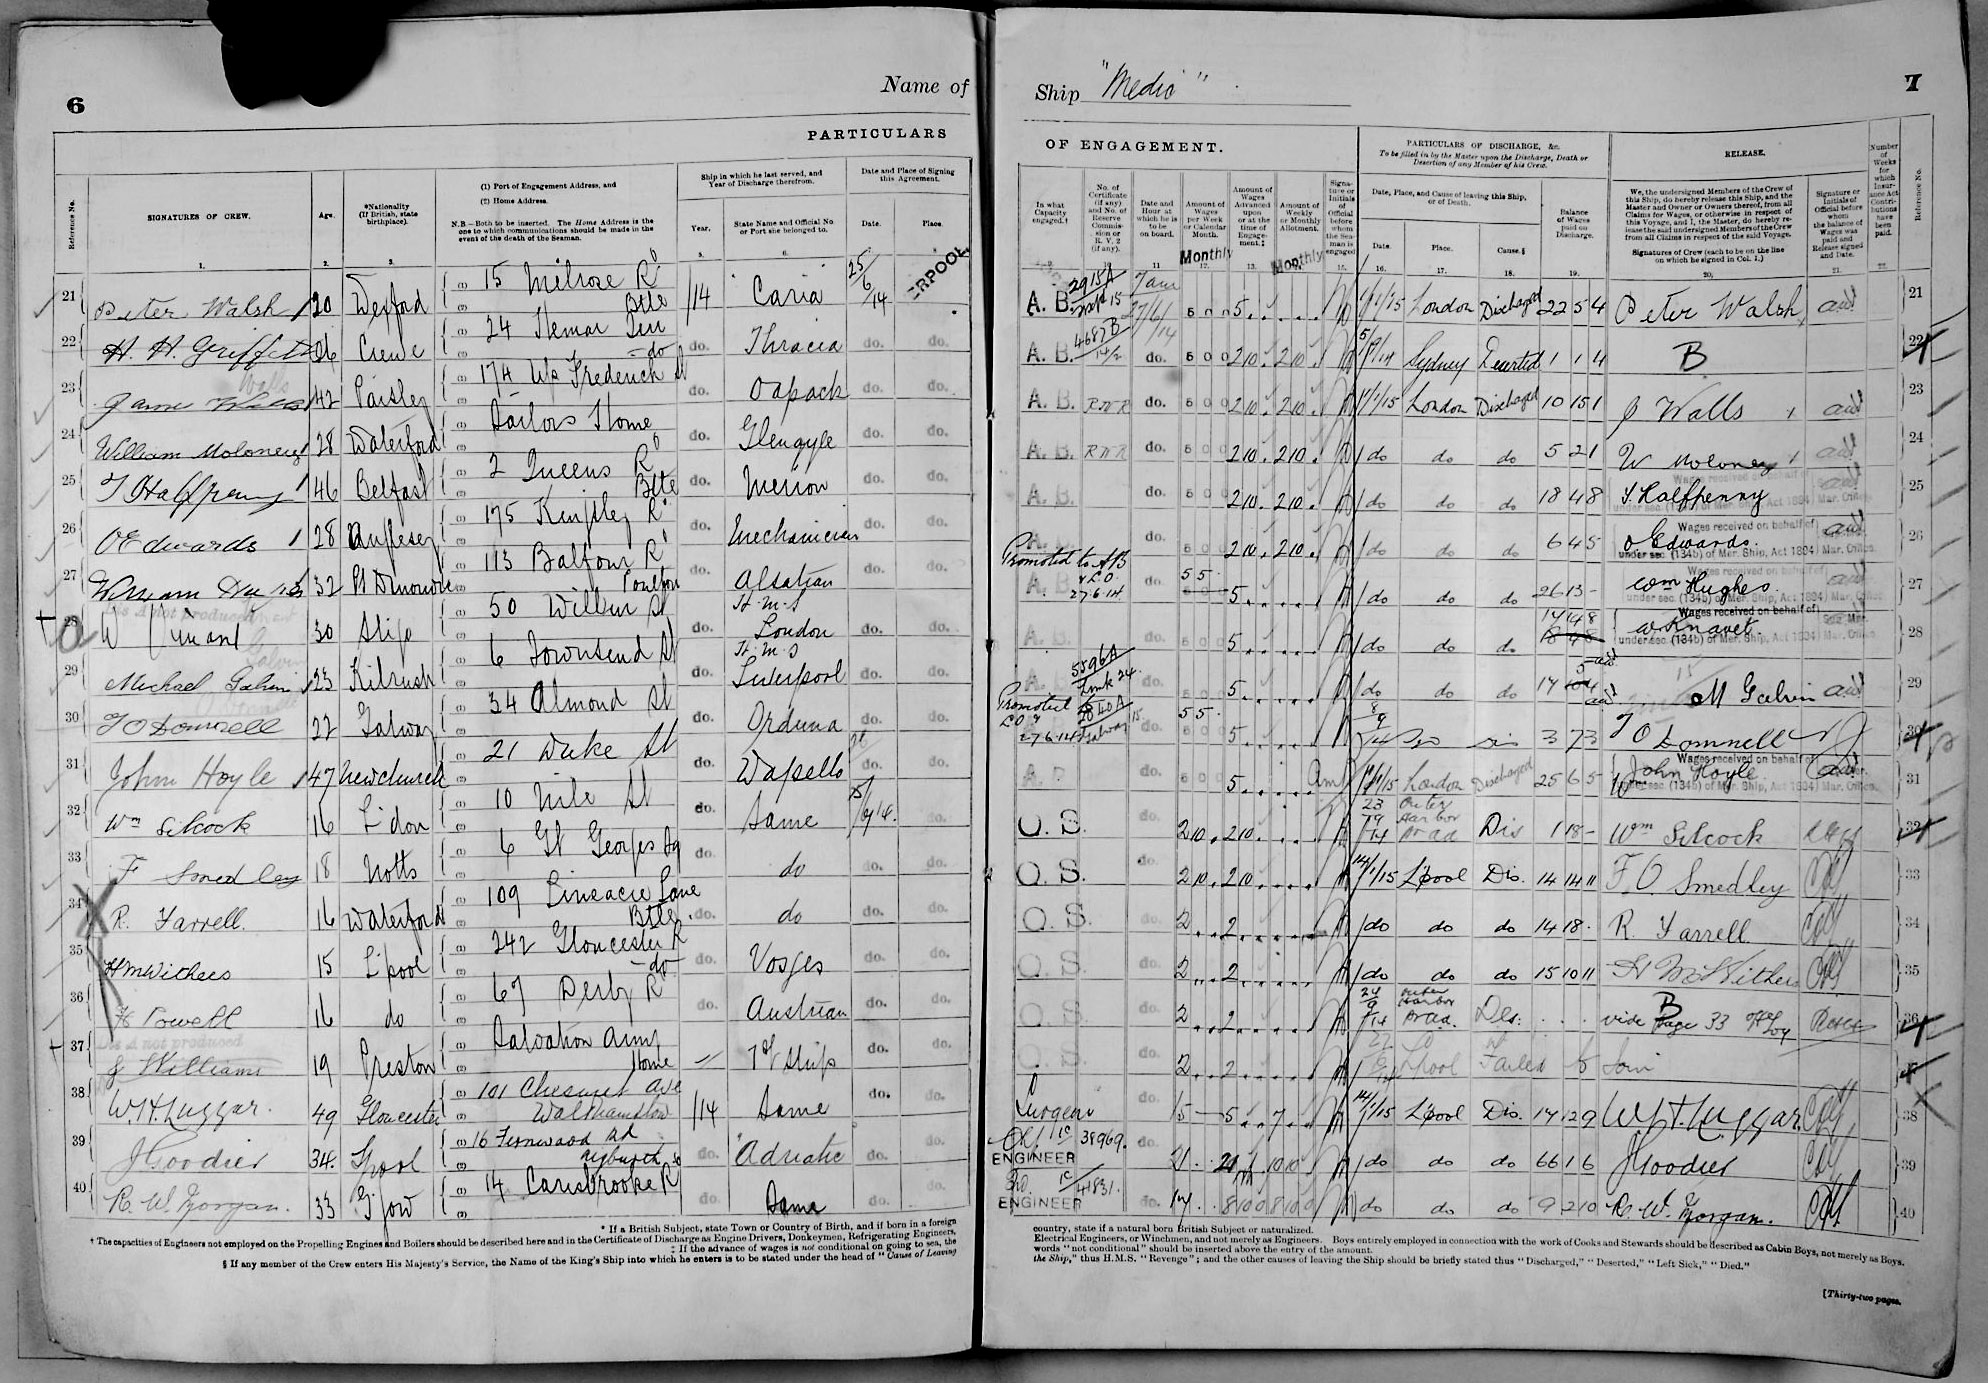 6
Name of
PARTICULARS
Reference No.
SIGNATURES OF CREW.
Age.
*Nationality (If British, state birthplace).
(1) Port of Engagement Address, and
(2) Home Address.
N.B.—Both to be inserted. The Home Address is the one to which communications should be made in the event of the death of the Seaman.
Ship in which he last served, and Year of Discharge therefrom.
Year.
State Name and Official No. or Port she belonged to.
Date and Place of Signing this Agreement.
Date.
Place.
1. 2. 3. 5. 6.
21 Peter Walsh 20 Wexford 15 Melrose Rd Btle /14 Caria 25/6/14 ERPOOL
22 H. H. Griffiths 26 Crewe 24 do do. Thracia do. do.
23 James Walls 42 Paisley 174 Frederick St do. Oapack do. do.
24 William Moloney 28 Waterford Sailors Home do. Glengyle do. do.
25 T Halfpenny 46 Belfast 2 Queens Rd Btle do. Merion do. do.
26 O Edwards 28 Anglesey 175 Kingsley Rd do. Mechanician do. do.
27 William Hughes 32 Pt Dinorwic 113 Balfour Rd do. Alsatian do. do.
28 W 30 Sligo 50 St do. H.M.S London do. do.
Dis A not produced
29 Michael Galvin 23 Kilrush 6 Townsend St do. H.M.S Liverpool do. do.
30 T O Donnell 22 Galway 34 Almond St do. Orduna do. do.
31 John Hoyle 47 Newchurch 21 Duke St do. Wapello do.
32 Wm Silcock 16 L'don 10 Nile St do. Same do.
33 F Smedley 18 Notts 6 Gt Georges Sq do. do do. do.
34 R. Farrell. 16 Waterford 109 Linacre Lane Btle. do. do do. do.
35 H McWithers 15 L'pool 242 Gloucester R do do. Vosges do. do.
36 H Powell 16 do 67 Derby Rd do. Austrian do. do.
Dis A not produced
37 J Williams 19 Preston Salvation Army Home 1st Ship do. do.
38 W.H. Luggar. 49 Gloucester 101 Chesnut Ave Walthamstow /14 Same do.
39 J Goodier 34. L'pool 16 Fernwood Rd Aigburth do. Adriatic do. do.
40 R. W. Morgan. 33 G'gow 14 Carisbrooke Rd do. Same do. do.
* If a British Subject, state Town or Country of Birth, and if born in a foreign
† The capacities of Engineers not employed on the Propelling Engines and Boilers should be described here and in the Certificate of Discharge as Engine Drivers, Donkeymen, Refrigerating Engineers,
‡ If the advance of wages is not conditional on going to sea, the
§ If any member of the Crew enters His Majesty's Service, the Name of the King's Ship into which he enters is to be stated under the head of "Cause of Leaving
Ship "Medic"
7
OF ENGAGEMENT.
PARTICULARS OF DISCHARGE, &c.
To be filled in by the Master upon the Discharge, Death or Desertion of any Member of his Crew.
RELEASE.
In what Capacity engaged.†
No. of Certificate (if any) and No. of Reserve Commission or R. V. 2 (if any).
Date and Hour at which he is to be on board.
Amount of Wages per Week or Calendar Month.
Amount of Wages Advanced upon or at the time of Engagement.‡
Amount of Weekly or Monthly Allotment.
Signature or Initials of Official before whom the Seaman is engaged
Date, Place, and Cause of leaving this Ship, or of Death.
Date.
Place.
Cause.§
Balance of Wages paid on Discharge.
We, the undersigned Members of the Crew of this Ship, do hereby release this Ship, and the Master and Owner or Owners thereof, from all Claims for Wages, or otherwise in respect of this Voyage, and I, the Master, do hereby release the said undersigned Members of the Crew from all Claims in respect of the said Voyage.
Signatures of Crew (each to be on the line on which he signed in Col. 1.)
Signature or Initials of Official before whom the balance of Wages was paid and Release signed and Date.
Number of Weeks for which Insurance Act Contributions have been paid.
Reference No.
Monthly Monthly
11 13. 15. 16. 17. 18. 19. 20. 21. 22.
A. B. 2915A 7 am 27/6/14 5 0 0 5 1/1/15 London Discharged 22 5 4 Peter Walsh 21
A. B. 4687B do. 5 0 0 2 10. 2 10. Sydney Deserted 1 1 4 B 22
A. B. RNR do. 5 0 0 2 10. 2 10. 1/1/15 London Discharged 10 15 1 J Walls 23
A. B. RNR do. 5 0 0 2 10. 2 10. do do do 5 2 1 W Moloney 24
A. B. do. 5 0 0 2 10. 2 10. do do do 18 4 8 T. Halfpenny 25
A. B. do. 5 0 0 2 10. 2 10. do do do 6 4 5 O Edwards. 26
Wages received on behalf of
under sec. (134b) of Mer. Ship. Act 1894
Promoted to AB & LO 27.6.14 A. B. do. 5 5 5 do do do 26 13 - Wm Hughes 27
A. B. do. 5 do do do 17 4 8 28
Wages received on behalf of
under sec. (134b) of Mer. Ship. Act 1894
A. B. 5596A do. 5 do do do 17 M Galvin 29
Promoted LO 27.6.14 do. 5 5. 5 3 7 3 T O Donnell 30
A. B. do. 5 0 0 5 1/1/15 London Discharged 25 6 5 John Hoyle 31
Wages received on behalf of
O. S. do. 2 10. 2 10. 23/9/14 Outer Harbor Dis 1 18 - Wm Silcock 32
O. S. do. 2 10. 2 10. 14/1/15 L'pool Dis. 14 14 11 F. O. Smedley 33
O. S. do. 2 2 do do do 14 18. R Farrell 34
O. S. do. 2 2 do do do 15 10 11 H McWithers 35
O. S. do. 2 2 24/9/14 Outer Harbor Des: B vide page 33 36
O. S. do. 2 2 L'pool Failed to Join 37
Surgeon 15 5 7 14/1/15 L'pool Dis. 17 12 9 W.H. Luggar 38
Chf ENGINEER 1c 38969. do. 21. 10 10 do do do 66 1 6 J Goodier 39
2nd. ENGINEER 1c 41831. do. 17. 8 10 0 8 10 0 do do do 9 2 10 R. W. Morgan. 40
country, state if a natural born British Subject or naturalized.
Electrical Engineers, or Winchmen, and not merely as Engineers. Boys entirely employed in connection with the work of Cooks and Stewards should be described as Cabin Boys, not merely as Boys.
words "not conditional" should be inserted above the entry of the amount.
the Ship," thus H.M.S. "Revenge"; and the other causes of leaving the Ship should be briefly stated thus "Discharged," "Deserted," "Left Sick," "Died."
[Thirty-two pages.